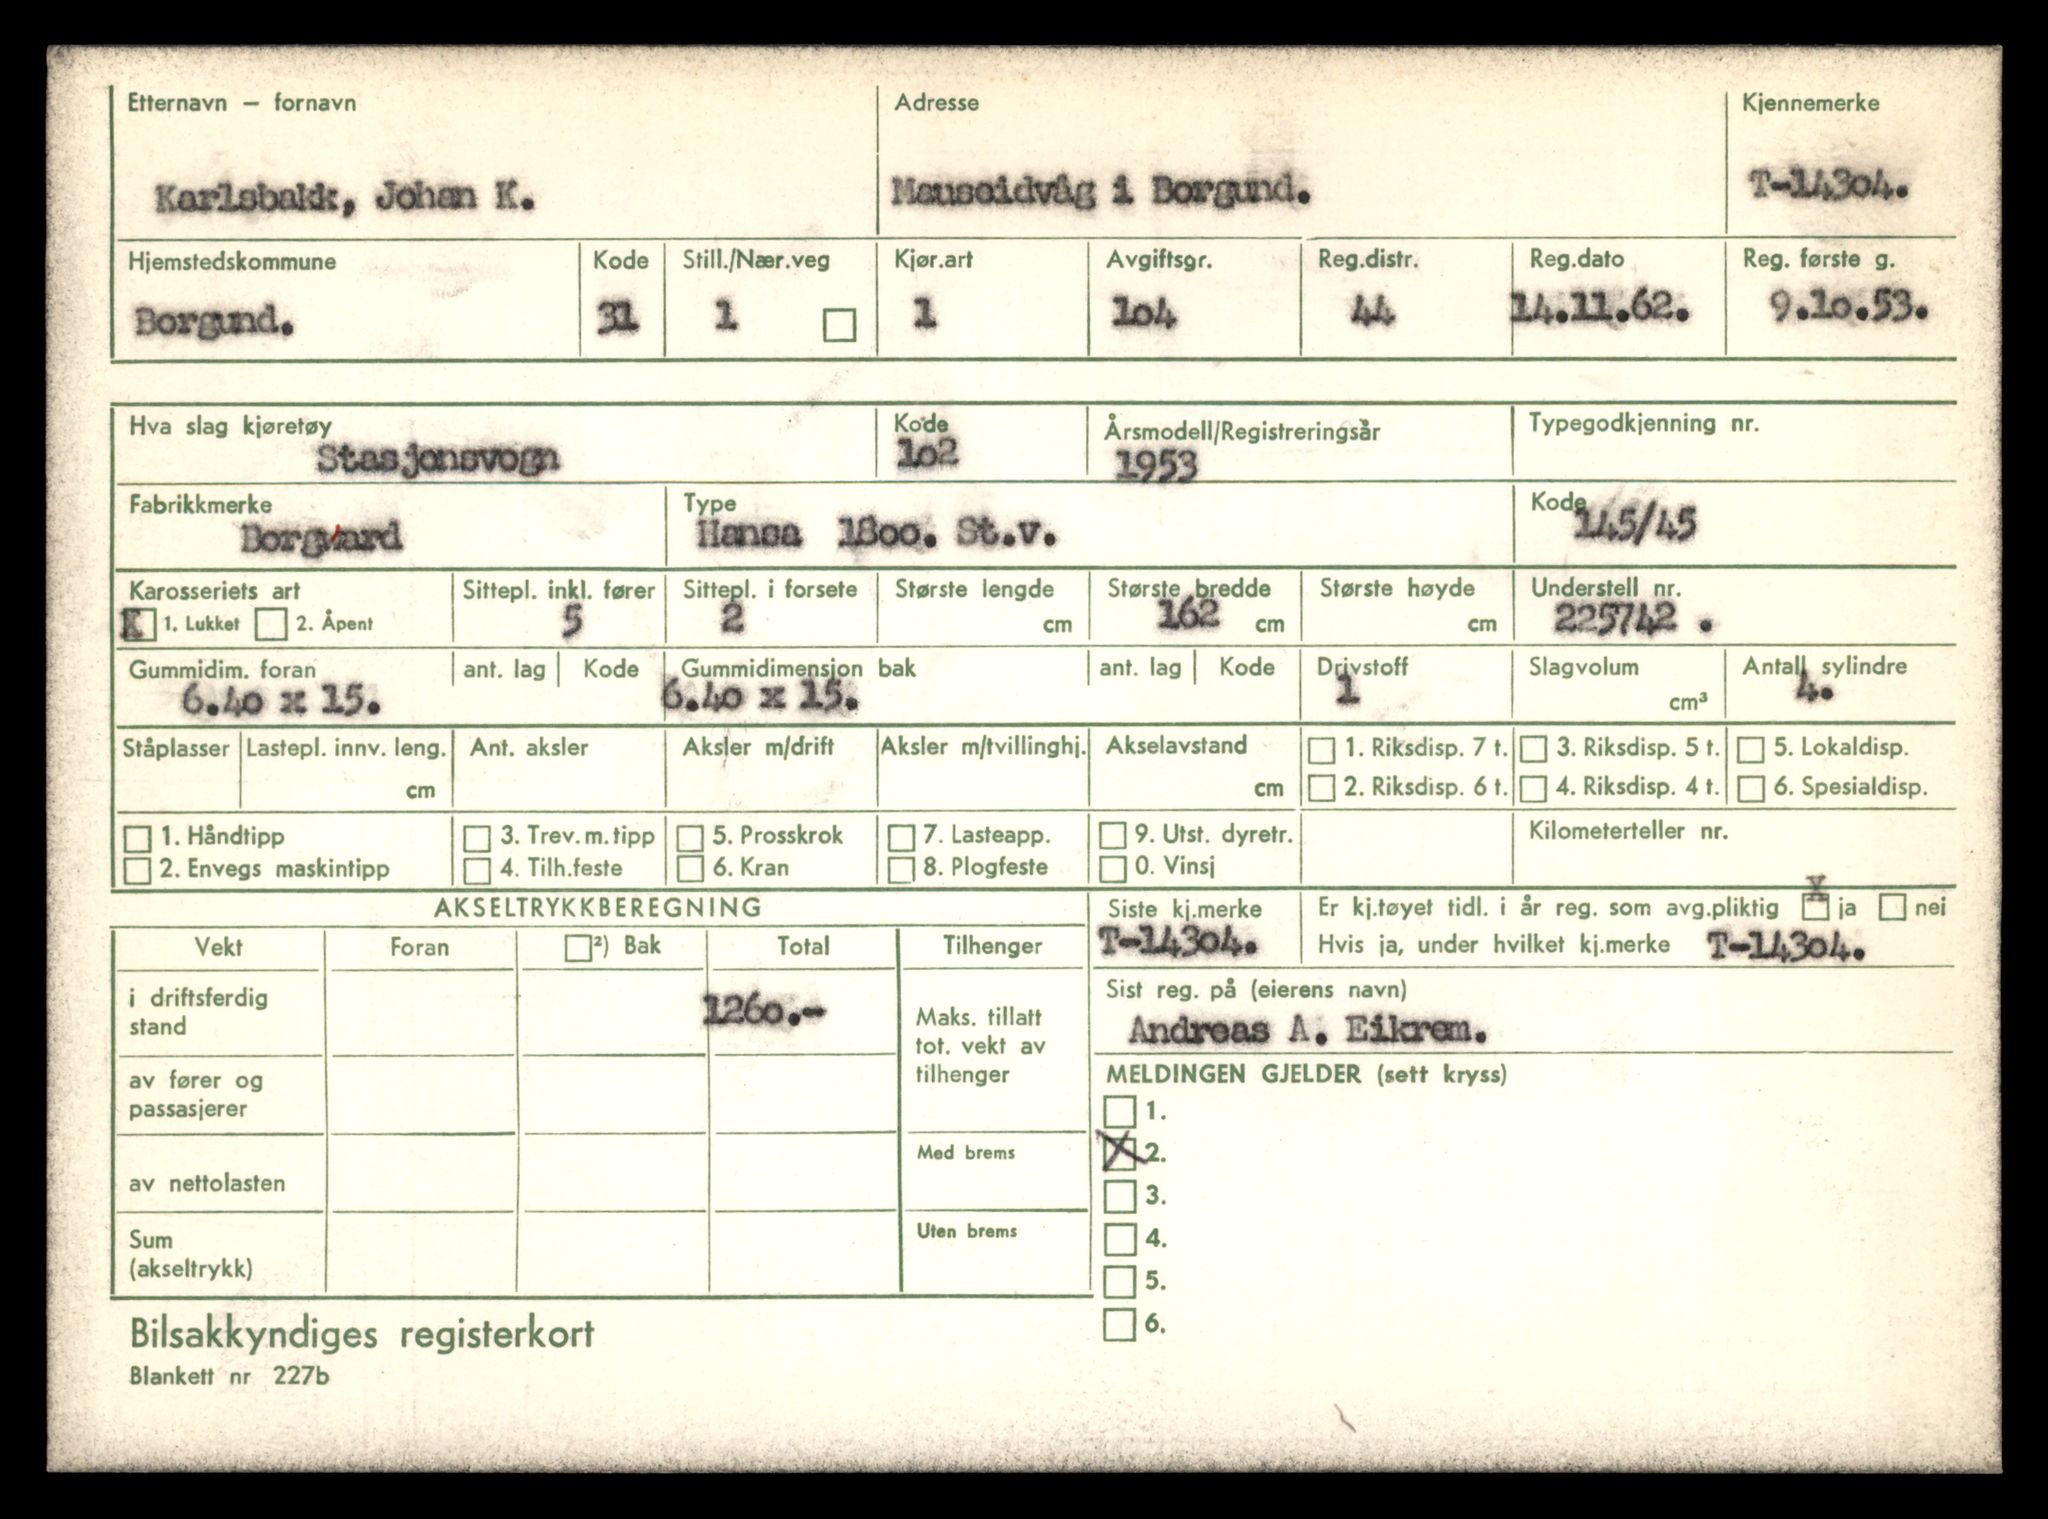 Etternavn – fornavn Adresse Kjennemerke
Karlsbakk, Johan K. Mauseidvåg i Borgund. T-14304.
Hjemstedskommune Kode Still./Nær.veg Kjør.art Avgiftsgr. Reg.distr. Reg.dato Reg. første g.
Borgund. 31 1 1 104 44 14.11.62. 9.10.53.
Hva slag kjøretøy Kode Årsmodell/Registreringsår Typegodkjenning nr.
Stasjonsvogn 102 1953
Fabrikkmerke Type Kode
Borgward Hansa 1800. St.v. 145/45
Karosseriets art Sittepl. inkl. fører Sittepl. i forsete Største lengde Største bredde Største høyde Understell nr.
X 1. Lukket 2. Åpent 5 2 cm 162 cm cm 225742 .
Gummidim. foran ant. lag Kode Gummidimensjon bak ant. lag Kode Drivstoff Slagvolum Antall sylindre
6.40 x 15. 6.40 x 15. 1 cm³ 4.
Ståplasser Lastepl. innv. leng. Ant. aksler Aksler m/drift Aksler m/tvillinghj. Akselavstand 1. Riksdisp. 7 t. 3. Riksdisp. 5 t. 5. Lokaldisp.
cm cm 2. Riksdisp. 6 t. 4. Riksdisp. 4 t. 6. Spesialdisp.
1. Håndtipp 3. Trev. m. tipp 5. Prosskrok 7. Lasteapp. 9. Utst. dyretr. Kilometerteller nr.
2. Envegs maskintipp 4. Tilh.feste 6. Kran 8. Plogfeste 0. Vinsj
AKSELTRYKKBEREGNING Siste kj.merke Er kj.tøyet tidl. i år reg. som avg.pliktig X ja nei
Vekt Foran ²) Bak Total Tilhenger T-14304. Hvis ja, under hvilket kj.merke T-14304.
i driftsferdig stand 1260.- Maks. tillatt tot. vekt av tilhenger
Sist reg. på (eierens navn)
Andreas A. Eikrem.
av fører og passasjerer
MELDINGEN GJELDER (sett kryss)
1.
Med brems X 2.
av nettolasten 3.
Uten brems 4.
Sum (akseltrykk) 5.
Bilsakkyndiges registerkort 6.
Blankett nr 227b